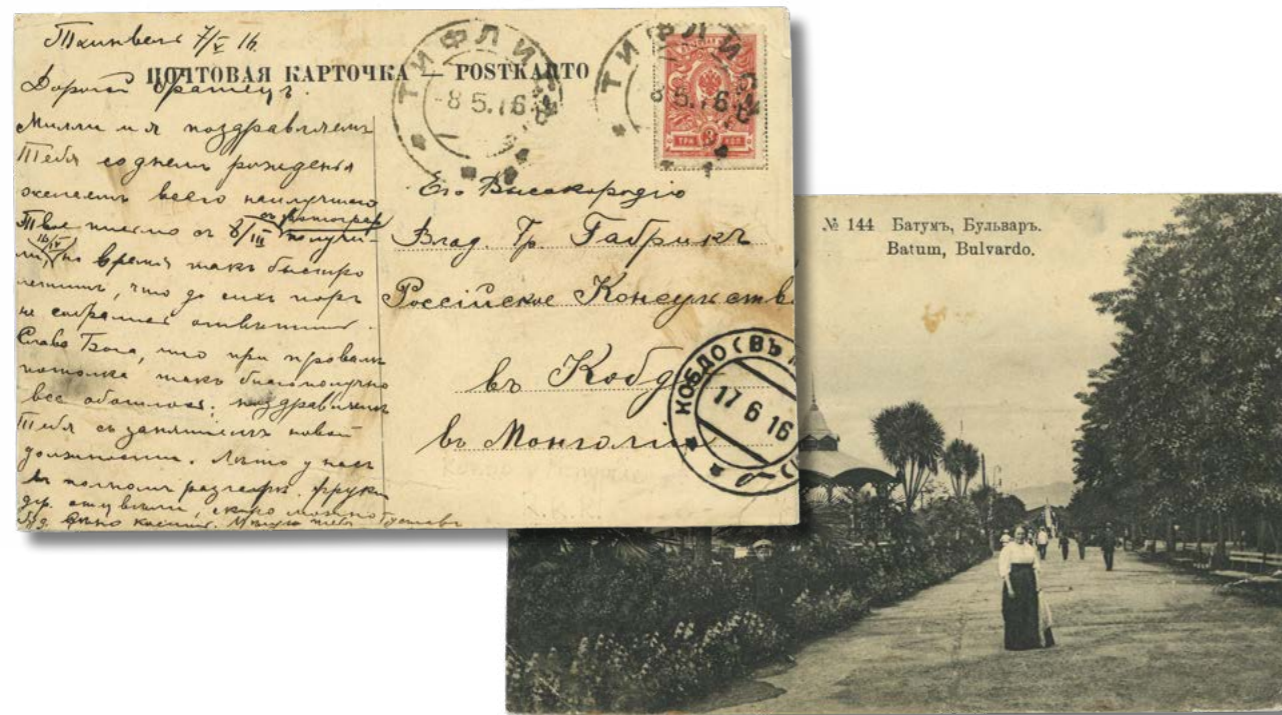 7/V 16.
ПОЧТОВАЯ КАРТОЧКА — POSTKARTO
Дорогой братецъ.
Милли и я поздравляемъ
Тебя со днемъ рожденья
желаемъ всего наилучшаго
Твое письмо отъ 8/III получи-
ли, но время такъ быстро
летитъ, что до сихъ поръ
не собрались отвѣтить.
Слава Бога, что при провалѣ
потолка такъ благополучно
все обошлось; поздравляемъ
Тебя съ занятіемъ новой
должности. Лѣто у насъ
въ полномъ разгарѣ.
др. отцвѣли, скоро можно
буд. сѣно косить. Цѣлую тебя Густавъ
ТИФЛИСЪ
-8 5.16
ТИФЛИСЪ
8 5.16
ТРИ КОП.
Его Высокородію
Влад. Гр. Габрикъ
Россійское Консульств
въ Кобд
въ Монголіи
КОБДО (ВЪ
17 6 16
№ 144 Батумъ, Бульваръ.
Batum, Bulvardo.